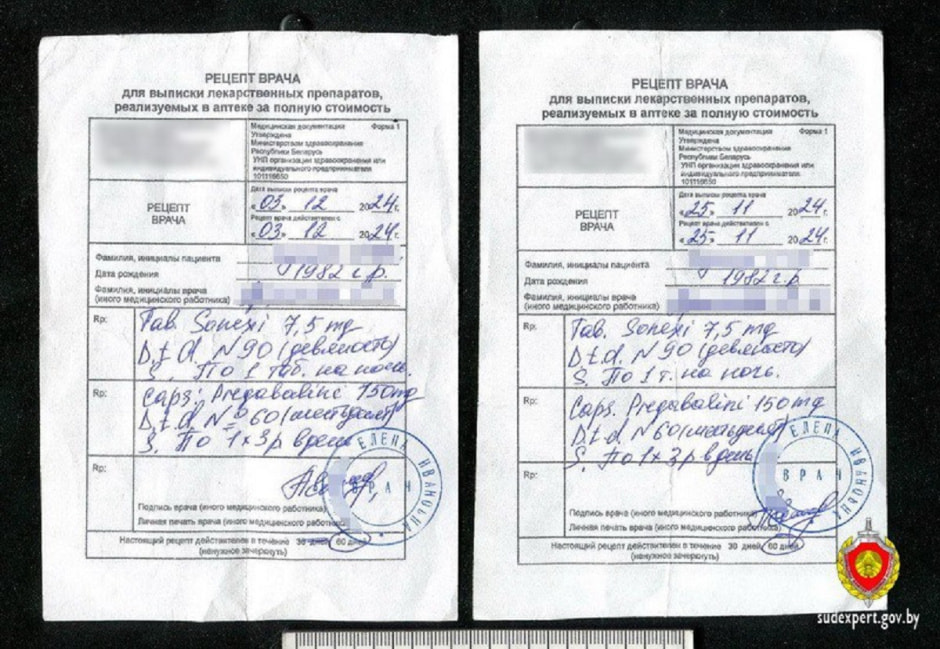 РЕЦЕПТ ВРАЧА
для выписки лекарственных препаратов,
реализуемых в аптеке за полную стоимость
Медицинская документация Форма 1
Утверждена
Министерством здравоохранения
Республики Беларусь
УНП организации здравоохранения или
индивидуального предпринимателя
101116650
РЕЦЕПТ
ВРАЧА
Дата выписки рецепта врача
«03» 12 2024г.
Рецепт врача действителен с
«03» 12 2024г.
Фамилия, инициалы пациента
Дата рождения 1982 г.р.
Фамилия, инициалы врача
(иного медицинского работника)
Rp: Tab. Sonexi 7,5 mg
D.t.d. N 90 (девяносто)
S. По 1 таб. на ночь.
Rp: Caps. Pregabalini 150mg
D.t.d. № 60 (шестьдесят)
S. По 1 x 3 р в день
Rp:
Подпись врача (иного медицинского работника)
Личная печать врача (иного медицинского работника)
ЕЛЕНА ИВАНОВНА
ВРАЧ
Настоящий рецепт действителен в течение 30 дней 60 дней
(ненужное зачеркнуть)
РЕЦЕПТ ВРАЧА
для выписки лекарственных препаратов,
реализуемых в аптеке за полную стоимость
Медицинская документация Форма 1
Утверждена
Министерством здравоохранения
Республики Беларусь
УНП организации здравоохранения или
индивидуального предпринимателя
101116650
РЕЦЕПТ
ВРАЧА
Дата выписки рецепта врача
«25» 11 2024г.
Рецепт врача действителен с
«25» 11 2024г.
Фамилия, инициалы пациента
Дата рождения 1982 г.р
Фамилия, инициалы врача
(иного медицинского работника)
Rp: Tab. Sonexi 7,5 mg
D.t.d. N 90 (девяносто)
S. По 1 т. на ночь.
Rp: Caps. Pregabalini 150 mg
D.t.d. N 60 (шестьдесят)
S. По 1 x 3 р в день
Rp:
Подпись врача (иного медицинского работника)
Личная печать врача (иного медицинского работника)
ЕЛЕНА ИВАНОВНА
ВРАЧ
Настоящий рецепт действителен в течение 30 дней 60 дней
(ненужное зачеркнуть)
sudexpert.gov.by